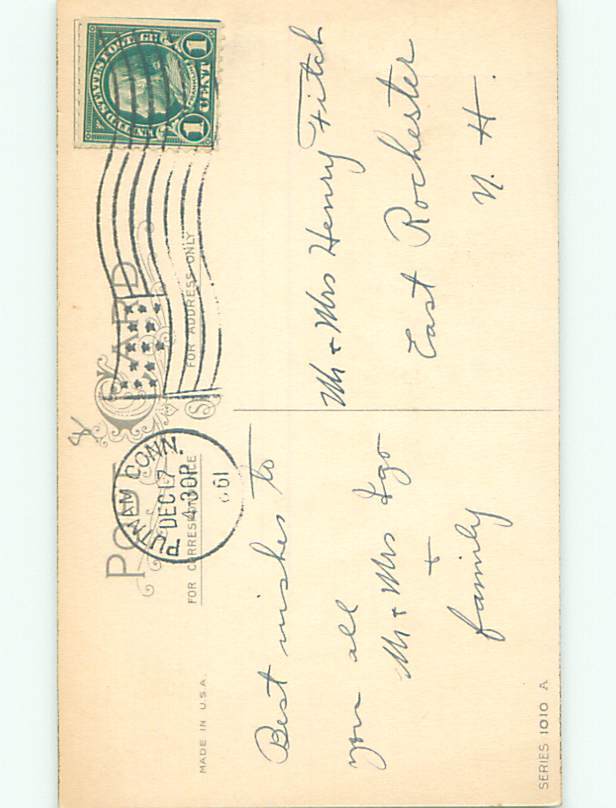 POST CARD
FOR CORRESPONDENCE
FOR ADDRESS ONLY
MADE IN U.S.A.
PUTNAM CONN.
DEC 17
4-30P
UNITED STATES POSTAGE
1 CENT 1
Best wishes to
you all
Mr + Mrs Igo
+
family
Mr + Mrs Henry Fitch
East Rochester
N. H.
SERIES 1010 A